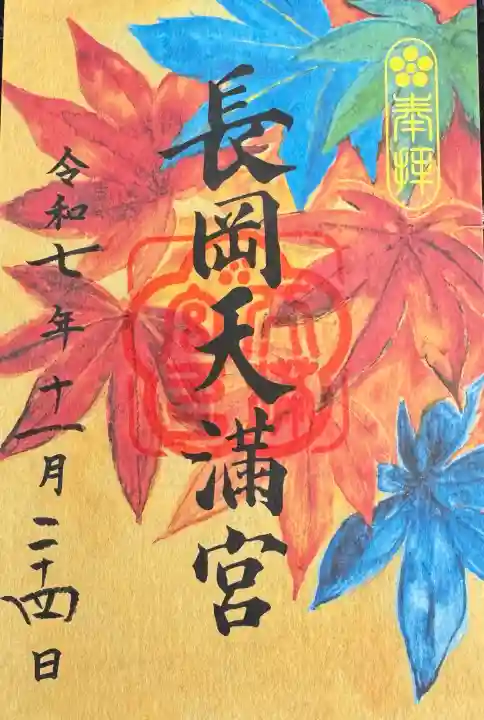 奉拝
長岡天満宮
令和七年十一月二十四日